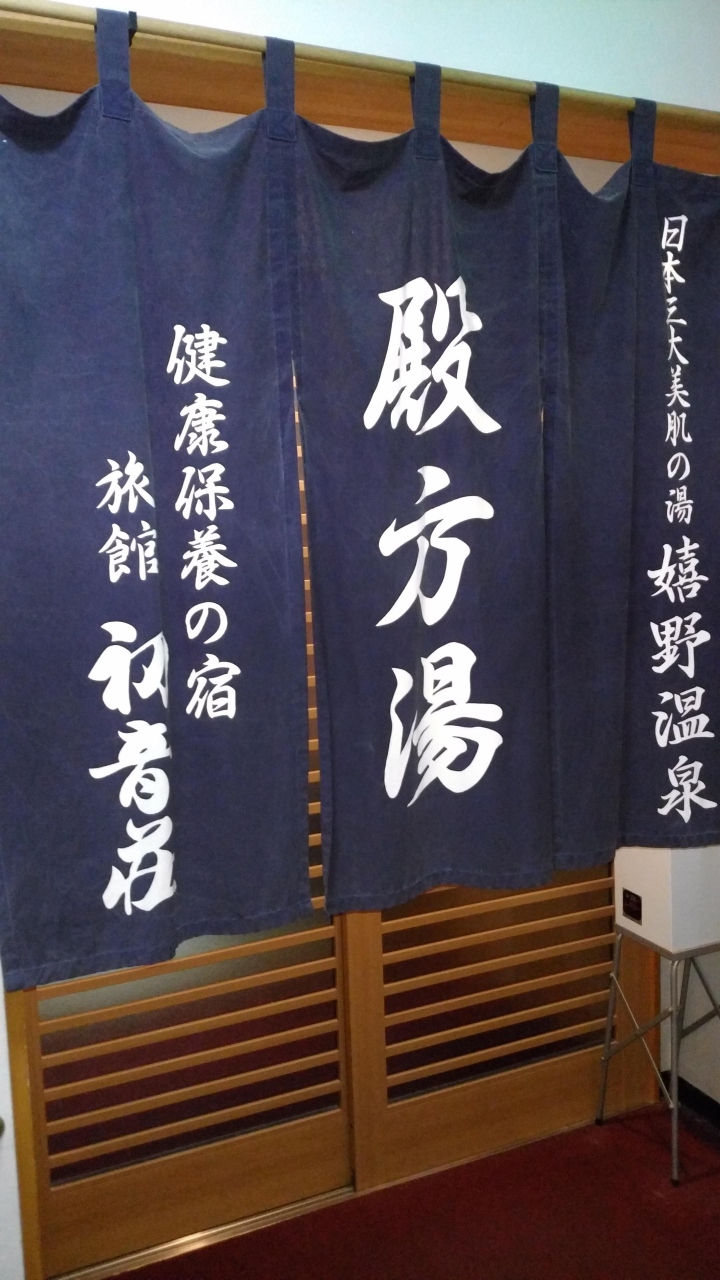 日本三大美肌の湯 嬉野温泉
殿方湯
健康保養の宿
旅館 初音荘